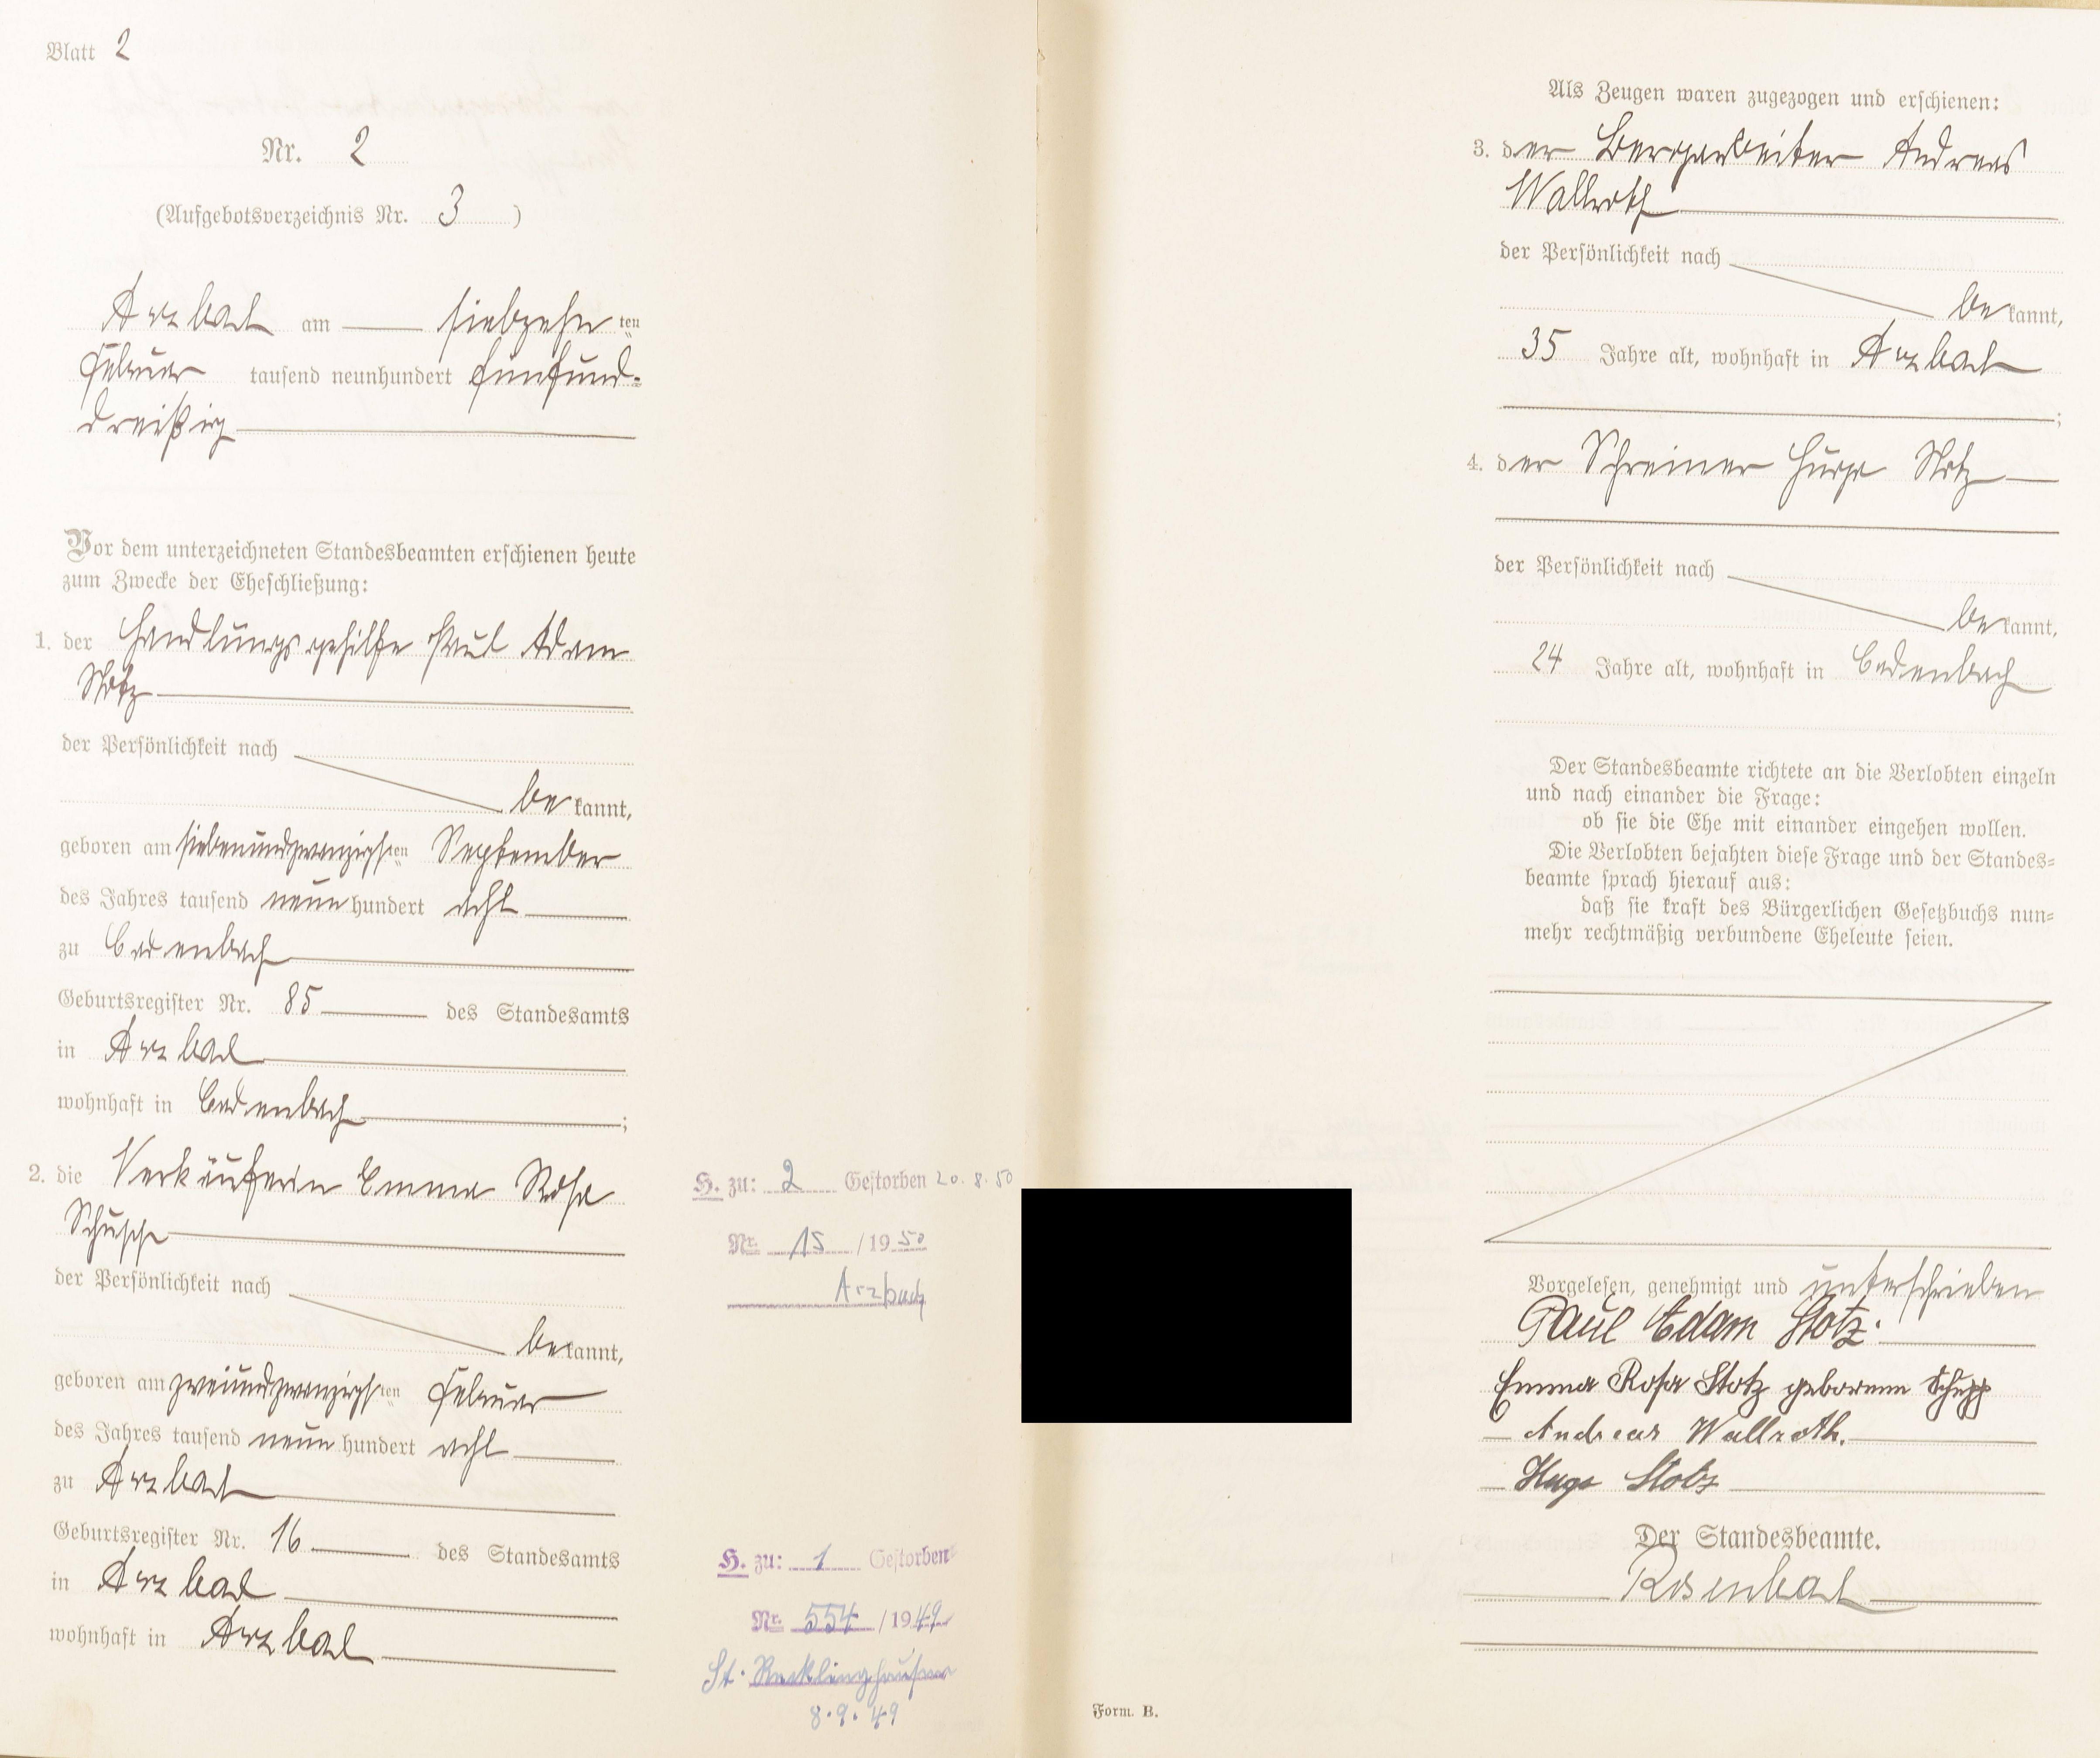 Blatt 2
Nr. 2
(Aufgebotsverzeichnis Nr. 3)
Arzbach am siebzehnten
Februar tausend neunhundert fünfund-
dreißig
Vor dem unterzeichneten Standesbeamten erschienen heute
zum Zwecke der Eheschließung:
1. der Handlungsgehilfe Paul Adam
Stotz
der Persönlichkeit nach
bekannt,
geboren am siebenundzwanzigsten September
des Jahres tausend neunhundert acht
zu Cadenbach
Geburtsregister Nr. 85 des Standesamts
in Arzbach
wohnhaft in Cadenbach;
2. die Verkäuferin Emma Rosa
der Persönlichkeit nach
bekannt,
geboren am zweiundzwanzigsten Februar
des Jahres tausend neunhundert acht
zu Arzbach
Geburtsregister Nr. 16 des Standesamts
in Arzbach
wohnhaft in Arzbach
H. zu: 2 Gestorben 20.8.50
Nr. 15 / 1950
Arzbach
H. zu: 1 Gestorben
Nr. 554 / 1949
St. Recklinghausen
8.9.49
Als Zeugen waren zugezogen und erschienen:
3. der Bergarbeiter Andreas
Wallroth
der Persönlichkeit nach
bekannt,
35 Jahre alt, wohnhaft in Arzbach
;
4. der Schreiner Hugo Stotz
der Persönlichkeit nach
bekannt,
24 Jahre alt, wohnhaft in Cadenbach
Der Standesbeamte richtete an die Verlobten einzeln
und nach einander die Frage:
ob sie die Ehe mit einander eingehen wollen.
Die Verlobten bejahten diese Frage und der Standes-
beamte sprach hierauf aus:
daß sie kraft des Bürgerlichen Gesetzbuchs nun-
mehr rechtmäßig verbundene Eheleute seien.
Vorgelesen, genehmigt und unterschrieben
Paul Adam Stotz.
Emma Rosa Stotz geborenen
Andreas Wallroth.
Hugo Stotz
Der Standesbeamte.
Rosenbach
Form. B.